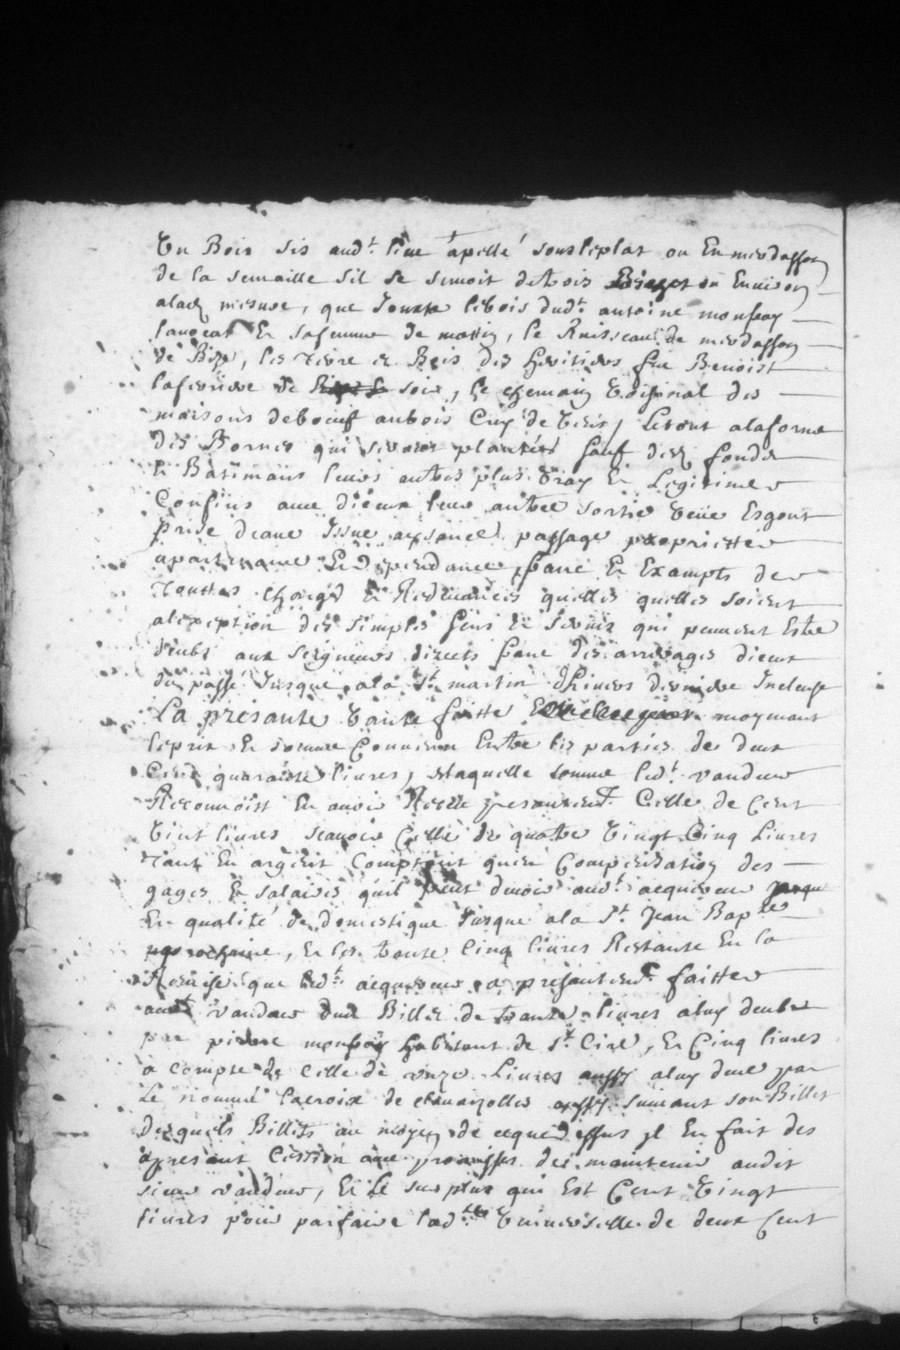 Un Bois sis aud.t lieu apellé sousleplat ou En
de la semaille sil se semoit detrois ou Environ
alad mesure, que Jouxte lebois dud.t antoine monfray
Er safemme de mattin, le Ruisseau de
de Bise, les terre er Bois des heritiers feu Benoist
laferriere de soir, le chemain des
maisons deboeuf aubois Cruy de , Letout alaforme
des Bornes qui seront plantées sauf desd fonds
Er Batimans leurs autres plus vray Er Legitimes
Confins avec diceux leur autre sortie veüe Esgout
prise deaue Issue aysance passage proprietter
apartenance Er dependance, franc Er Exempts de
touttes charges Er Redevances quelles quelles soient
alexeption des simples sens Er servis qui peuvent Estre
deubs aux seigneurs directs franc des arrerages diceux
du passé Jusque ala S.t martin dhivers derniere Incluse
La presante vante faitte moymant
leprix Er somme Convenu Entre les parties de deux
Cent quarante livres, delaquelle somme led.t vandeur
Reconnoist En avoir Receu presantemt. Celle de Cent
vint livres scavoir Celle de quatre vingt Cinq Livres
tant En argent Comptant quen Compensation des
gages Er salaires quil peut devoir aud.t acquereur
En qualité de domestique Jusque ala S.t Jean Bap.te
prochaine, Er les trante Cinq livres Restante En la
Remise que led.t acquereur a presantemt. faitte
aud.t vandeur dun Billet de trante livres aluy deube
par pierre monfray habitant de S.t Cire, Er Cinq livres
a compte de Celle de onze Livres aussy aluy deue par
Le nommé lacroix de aussy suivant son Billet
desquels Billets au moyen de ceque dessus jl En fait des
apresant Cession avec promesses de maintenir audit
sieur vandeur, Er Le surplus qui Est Cent vingt
livres pour parfaire lad.te universelle de deux Cent